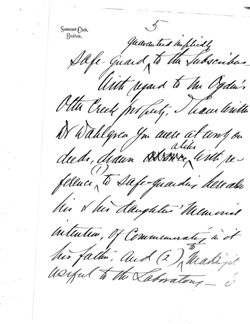 Somerset Club,
Boston.
5
guaranteed impliedly
Safe-guard to the Subscribers.
With regard to Mr Ogden's
Otter Creek property, I have written
Dr Wahlgren
deeds, drawn with re-
ference (1) to safe-guarding
his & his daughter's Memorial
intention, of Commemorating in it
his father, and (2) to making it
useful to the Laboratory —